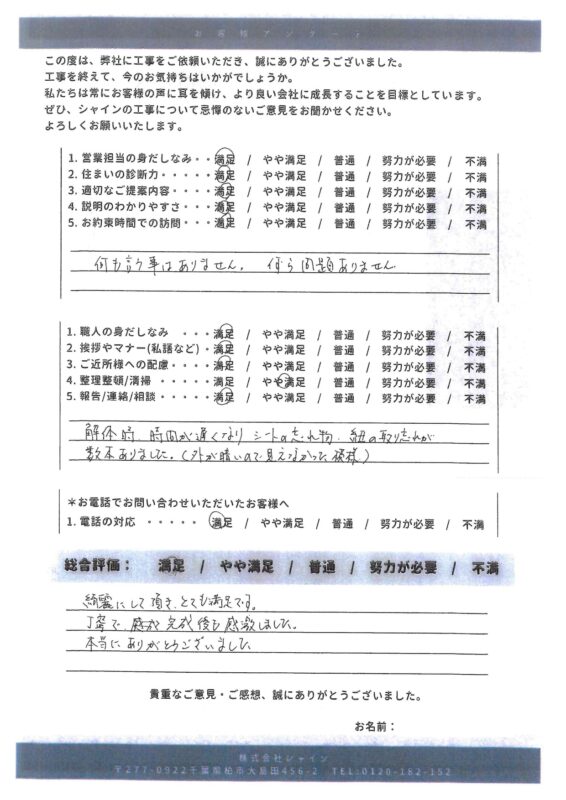 お客様アンケート
この度は、弊社に工事をご依頼いただき、誠にありがとうございました。
工事を終えて、今のお気持ちはいかがでしょうか。
私たちは常にお客様の声に耳を傾け、より良い会社に成長することを目標としています。
ぜひ、シャインの工事について忌憚のないご意見をお聞かせください。
よろしくお願いいたします。
1. 営業担当の身だしなみ・・満足 / やや満足 / 普通 / 努力が必要 / 不満
2. 住まいの診断力・・・・・満足 / やや満足 / 普通 / 努力が必要 / 不満
3. 適切なご提案内容・・・・満足 / やや満足 / 普通 / 努力が必要 / 不満
4. 説明のわかりやすさ・・・満足 / やや満足 / 普通 / 努力が必要 / 不満
5. お約束時間での訪問・・・満足 / やや満足 / 普通 / 努力が必要 / 不満
何も言う事はありません。何ら問題ありません
1. 職人の身だしなみ ・・・満足 / やや満足 / 普通 / 努力が必要 / 不満
2. 挨拶やマナー(私語など)・満足 / やや満足 / 普通 / 努力が必要 / 不満
3. ご近所様への配慮・・・・満足 / やや満足 / 普通 / 努力が必要 / 不満
4. 整理整頓/清掃 ・・・・・満足 / やや満足 / 普通 / 努力が必要 / 不満
5. 報告/連絡/相談・・・・・満足 / やや満足 / 普通 / 努力が必要 / 不満
解体時、時間が遅くなり シートの忘れ物、紐の取り忘れが
数本ありました。(外が暗いので見えなかった模様)
＊お電話でお問い合わせいただいたお客様へ
1. 電話の対応 ・・・・・ 満足 / やや満足 / 普通 / 努力が必要 / 不満
総合評価： 満足 / やや満足 / 普通 / 努力が必要 / 不満
綺麗にして頂き、とても満足です。
丁寧で 完成後も感激しました。
本当にありがとうございました
貴重なご意見・ご感想、誠にありがとうございました。
お名前：
株式会社シャイン
〒277-0922千葉県柏市大島田456-2 TEL:0120-182-152